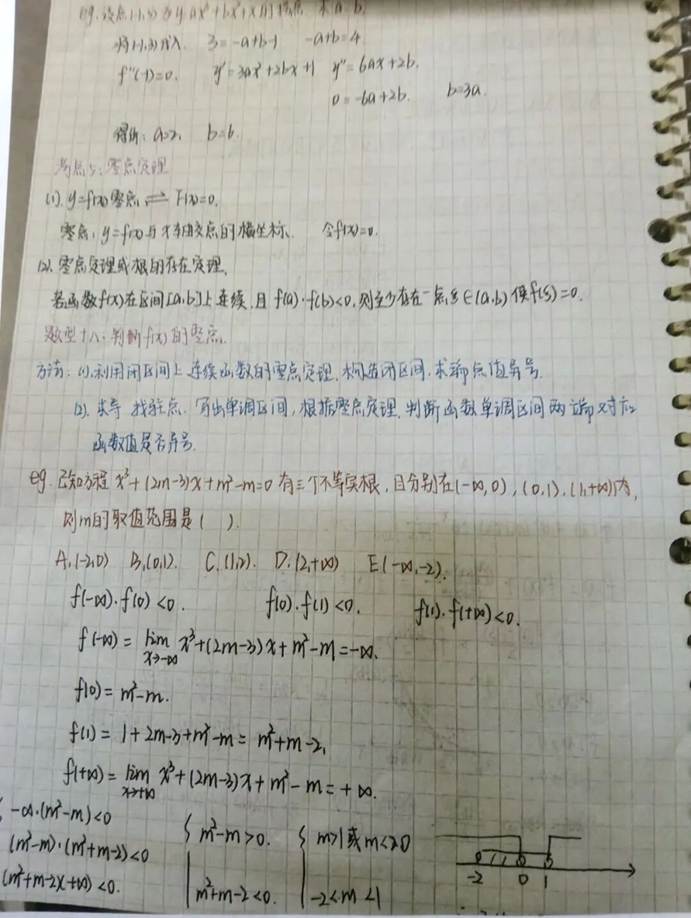 eg. 设点(-1,3)为y=ax³+bx²+x的拐点 求a, b.
将(-1,3)代入. 3=-a+b-1 -a+b=4.
f''(-1)=0. y'=3ax²+2bx+1 y''=6ax+2b.
0=-6a+2b. b=3a.
得出: a=2, b=6.
考点5: 零点定理
(1). y=f(x)零点 ⇌ f(x)=0.
零点: y=f(x)与x轴交点的横坐标. 令f(x)=0.
(2). 零点定理或根的存在定理,
若函数f(x)在区间[a,b]上连续,且f(a)·f(b)<0,则至少存在一点ξ∈(a,b)使f(ξ)=0.
题型十八. 判断f(x)的零点.
方法: (1).利用闭区间上连续函数的零点定理. 构造闭区间.求端点值异号.
(2). 求导 找驻点. 写出单调区间,根据零点定理.判断函数单调区间两端对应
函数值是否异号.
eg. 已知方程x³+(2m-3)x+m²-m=0有三个不等实根,且分别在(-∞,0),(0,1),(1,+∞)内,
则m的取值范围是( ).
A.(-2,0) B.(0,1). C.(1,2). D.(2,+∞) E(-∞,-2).
f(-∞)·f(0)<0. f(0)·f(1)<0. f(1)·f(+∞)<0.
f(-∞)=lim x→-∞ x³+(2m-3)x+m²-m=-∞.
f(0)=m²-m.
f(1)=1+2m-3+m²-m=m²+m-2,
f(+∞)=lim x→+∞ x³+(2m-3)x+m²-m=+∞.
{ -∞·(m²-m)<0
(m²-m)·(m²+m-2)<0 { m²-m>0. { m>1或m<0
(m²+m-2)(+∞)<0. m²+m-2<0. -2<m<1
-2 0 1